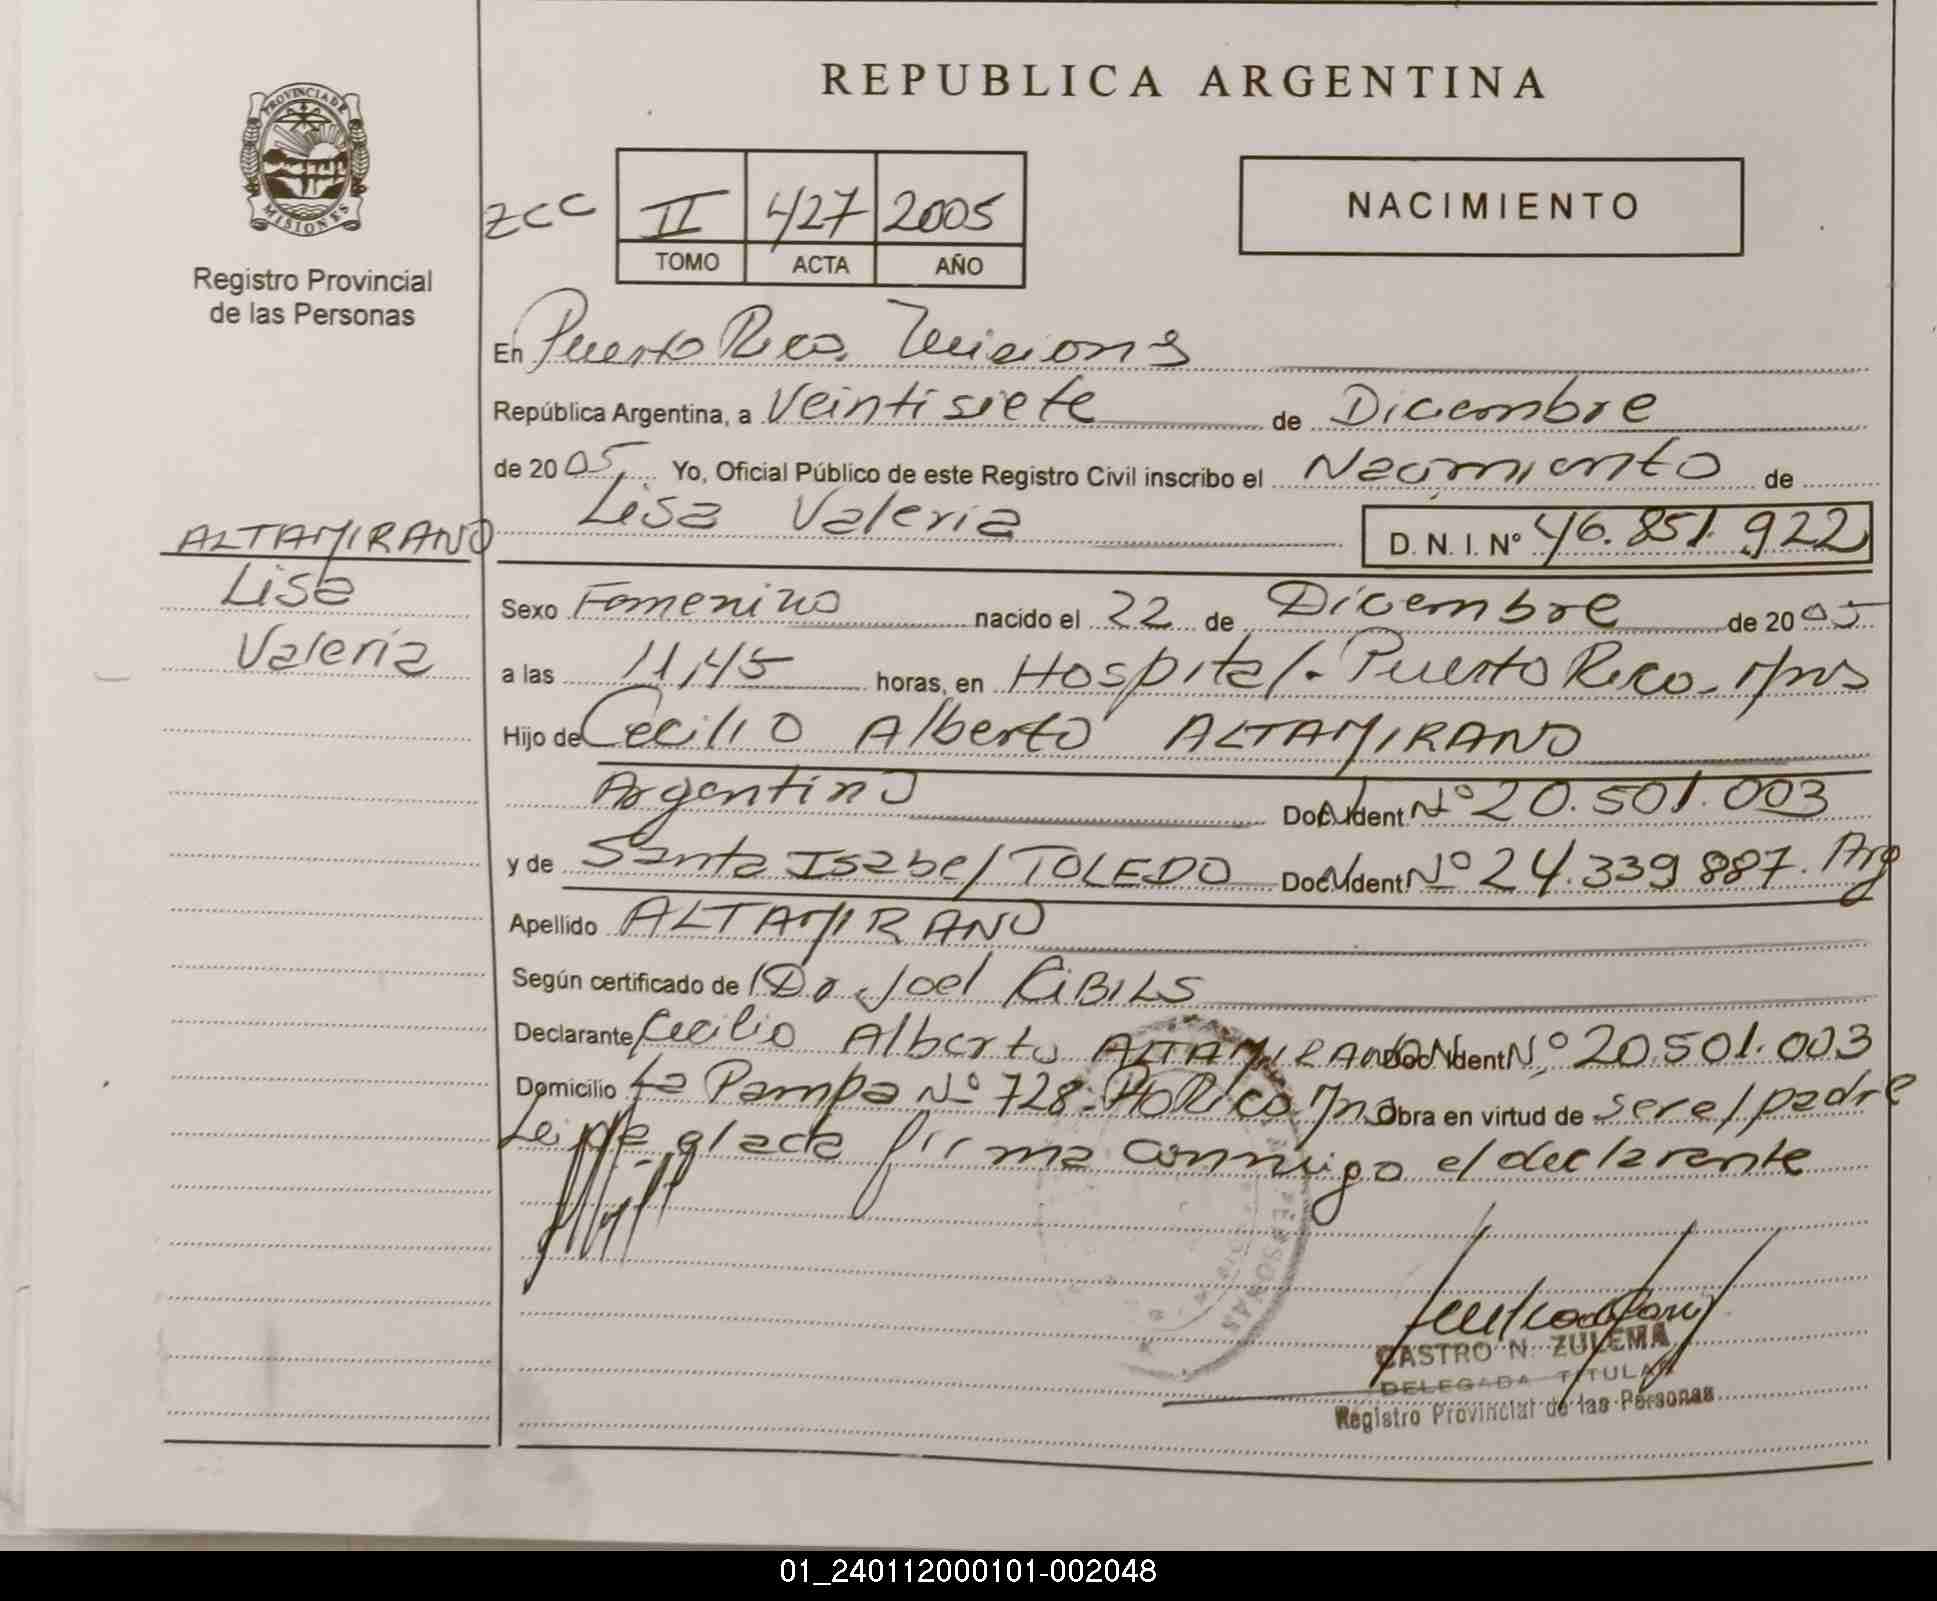 REPUBLICA ARGENTINA
PROVINCIA DE
MISIONES
Registro Provincial
de las Personas
zcc II 427 2005
TOMO ACTA AÑO
NACIMIENTO
En Puerto Rico. Misiones
República Argentina, a Veintisiete de Dicembre
de 2005, Yo, Oficial Público de este Registro Civil inscribo el Nacimiento de
Lisa Valeria D. N. I. Nº 46.851.922
ALTAMIRANO
Lisa
Valeria
Sexo Femenino nacido el 22 de Dicembre de 2005
a las 11,45 horas, en Hospital. Puerto Rico. Mns
Hijo de Cecilio Alberto ALTAMIRANO
Argentino Doc. Ident. Nº 20.501.003
y de Santa Isabel TOLEDO Doc. Ident. Nº 24.339 887. Arg
Apellido ALTAMIRANO
Según certificado de Dr. Joel RIBILS
Declarante Cecilio Alberto ALTAMIRANO Doc. Ident. Nº 20.501.003
Domicilio La Pampa Nº 728. Pto Rico Mns Obra en virtud de ser el padre
Leida el acta firma conmigo el declarante
PERSONAS
CASTRO N. ZULEMA
DELEGADA TITULAR
Registro Provincial de las Personas
01_240112000101-002048